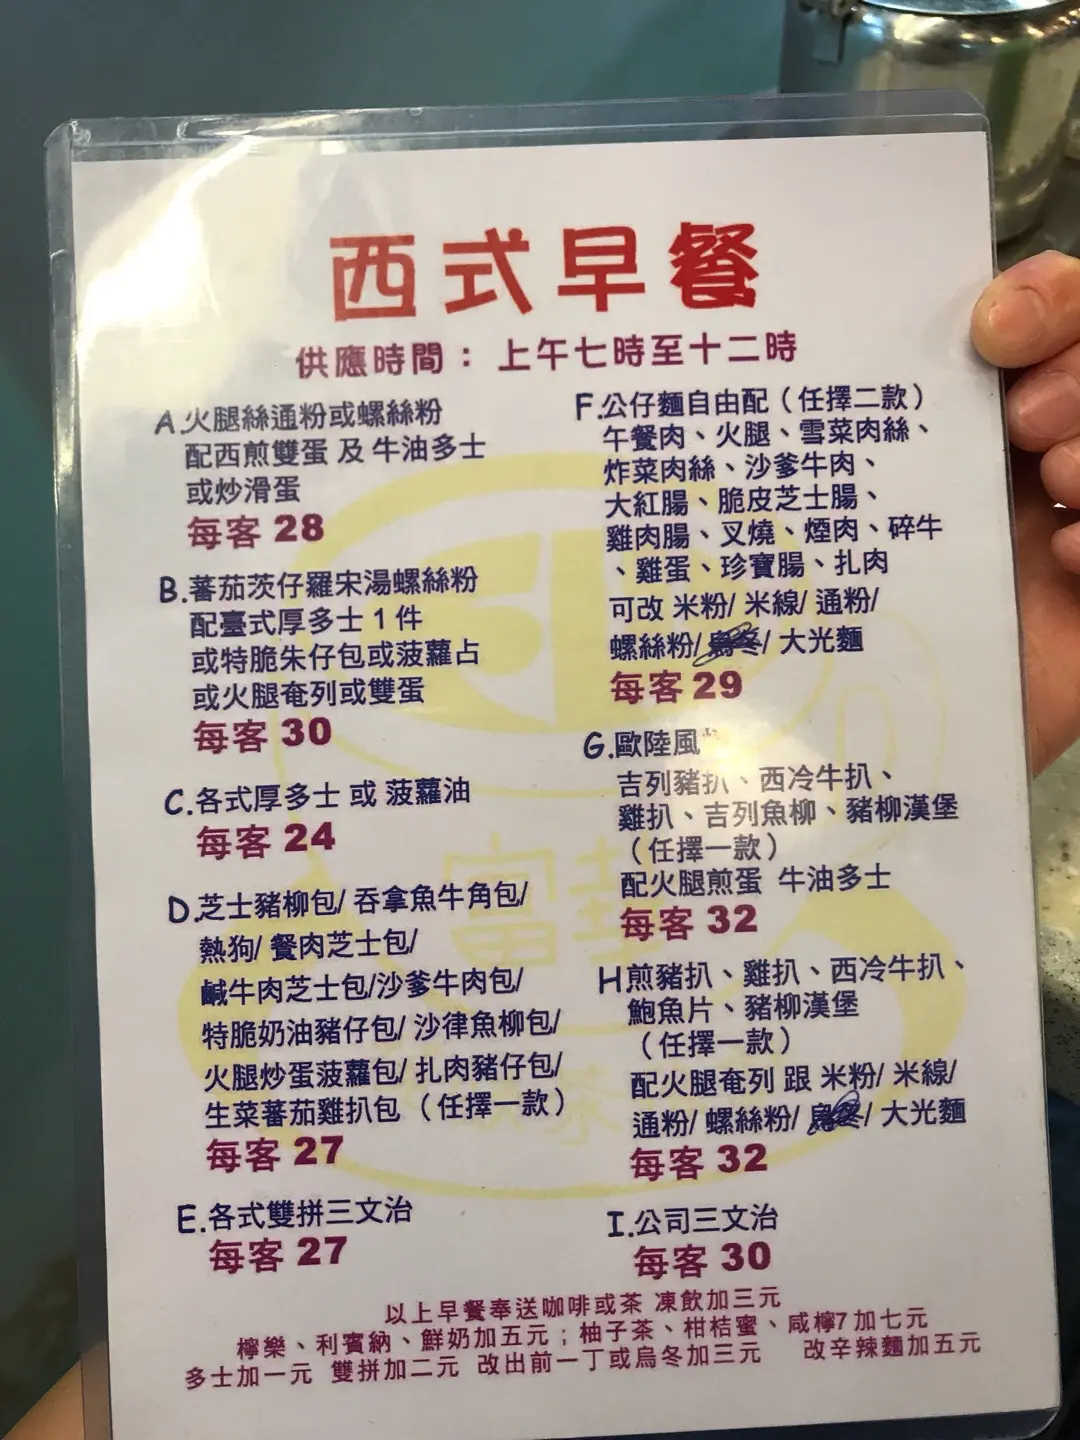 西式早餐
供應時間：上午七時至十二時
A.火腿絲通粉或螺絲粉
配西煎雙蛋 及 牛油多士
或炒滑蛋
每客 28
B.蕃茄茨仔羅宋湯螺絲粉
配臺式厚多士 1 件
或特脆朱仔包或菠蘿占
或火腿奄列或雙蛋
每客 30
C.各式厚多士 或 菠蘿油
每客 24
D.芝士豬柳包/ 吞拿魚牛角包/
熱狗/ 餐肉芝士包/
鹹牛肉芝士包/沙爹牛肉包/
特脆奶油豬仔包/ 沙律魚柳包/
火腿炒蛋菠蘿包/ 扎肉豬仔包/
生菜蕃茄雞扒包（任擇一款）
每客 27
E.各式雙拼三文治
每客 27
F.公仔麵自由配（任擇二款）
午餐肉、火腿、雪菜肉絲、
炸菜肉絲、沙爹牛肉、
大紅腸、脆皮芝士腸、
雞肉腸、叉燒、煙肉、碎牛
、雞蛋、珍寶腸、扎肉
可改 米粉/ 米線/ 通粉/
螺絲粉/ 烏冬/ 大光麵
每客 29
G.歐陸風
吉列豬扒、西冷牛扒、
雞扒、吉列魚柳、豬柳漢堡
（任擇一款）
配火腿煎蛋 牛油多士
每客 32
H.煎豬扒、雞扒、西冷牛扒、
鮑魚片、豬柳漢堡
（任擇一款）
配火腿奄列 跟 米粉/ 米線/
通粉/ 螺絲粉/ 烏冬/ 大光麵
每客 32
I.公司三文治
每客 30
以上早餐奉送咖啡或茶 凍飲加三元
檸樂、利賓納、鮮奶加五元；柚子茶、柑桔蜜、咸檸7加七元
多士加一元 雙拼加二元 改出前一丁或烏冬加三元 改辛辣麵加五元